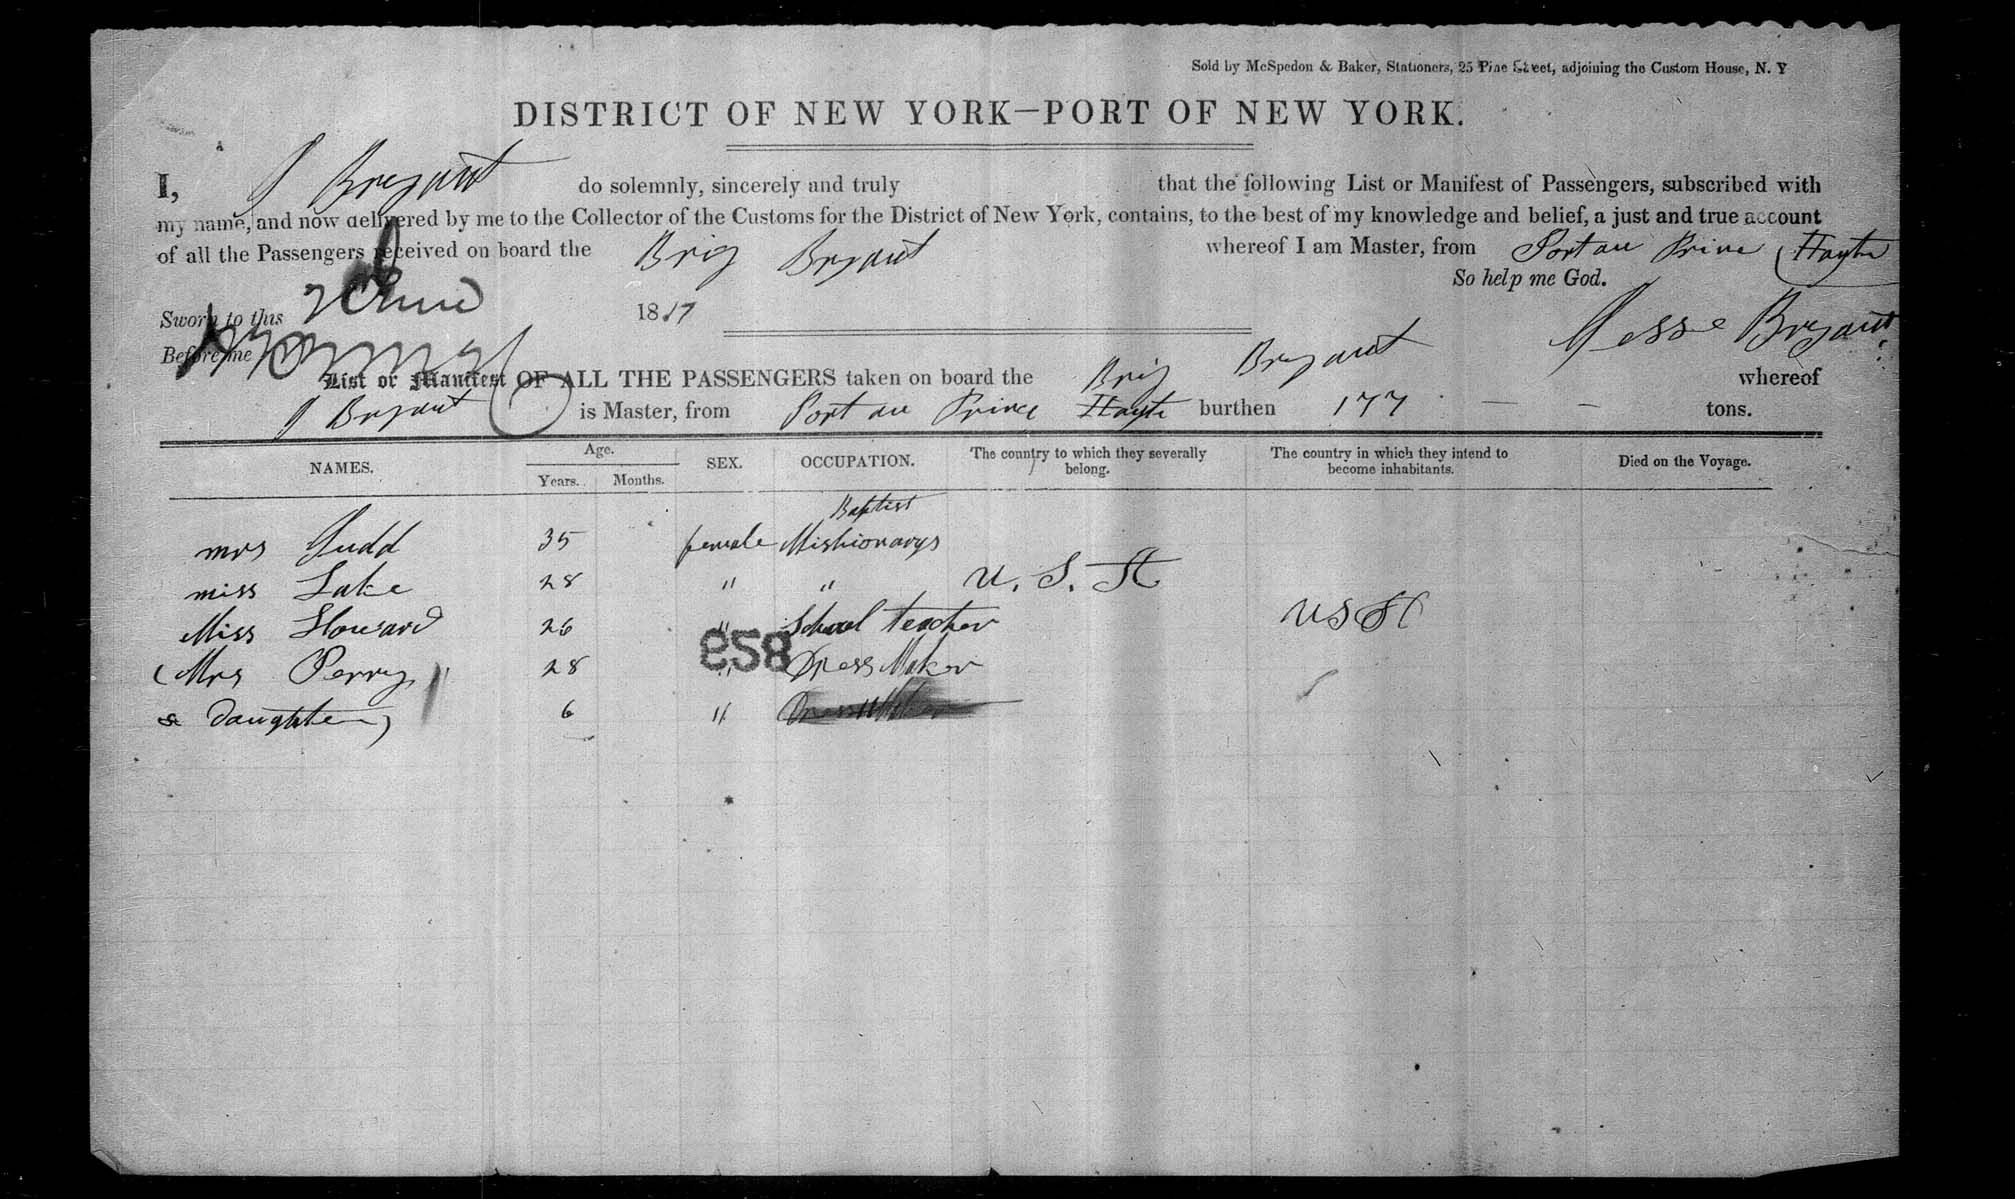 Sold by McSpedon & Baker, Stationers, 25 Pine Street, adjoining the Custom House, N. Y
DISTRICT OF NEW YORK—PORT OF NEW YORK.
I, J Bryant do solemnly, sincerely and truly that the following List or Manifest of Passengers, subscribed with
my name, and now delivered by me to the Collector of the Customs for the District of New York, contains, to the best of my knowledge and belief, a just and true account
of all the Passengers received on board the Brig Bryant whereof I am Master, from Port au Prince Hayte
So help me God.
Sworn to this June 18
Before me
Jesse Bryant
List or Manifest OF ALL THE PASSENGERS taken on board the Brig Bryant whereof
J Bryant is Master, from Port au Prince Hayte burthen 177 tons.
NAMES. Age. Years. Months. SEX. OCCUPATION. The country to which they severally belong. The country in which they intend to become inhabitants. Died on the Voyage.
Baptist
mrs Judd 35 female Mishionarys
miss Lake 28 " " U. S. A
Miss Howard 26 " School teacher U S A
958
(Mrs Perry " 28 " Dress Maker
& Daughter) 6 " Dress Maker